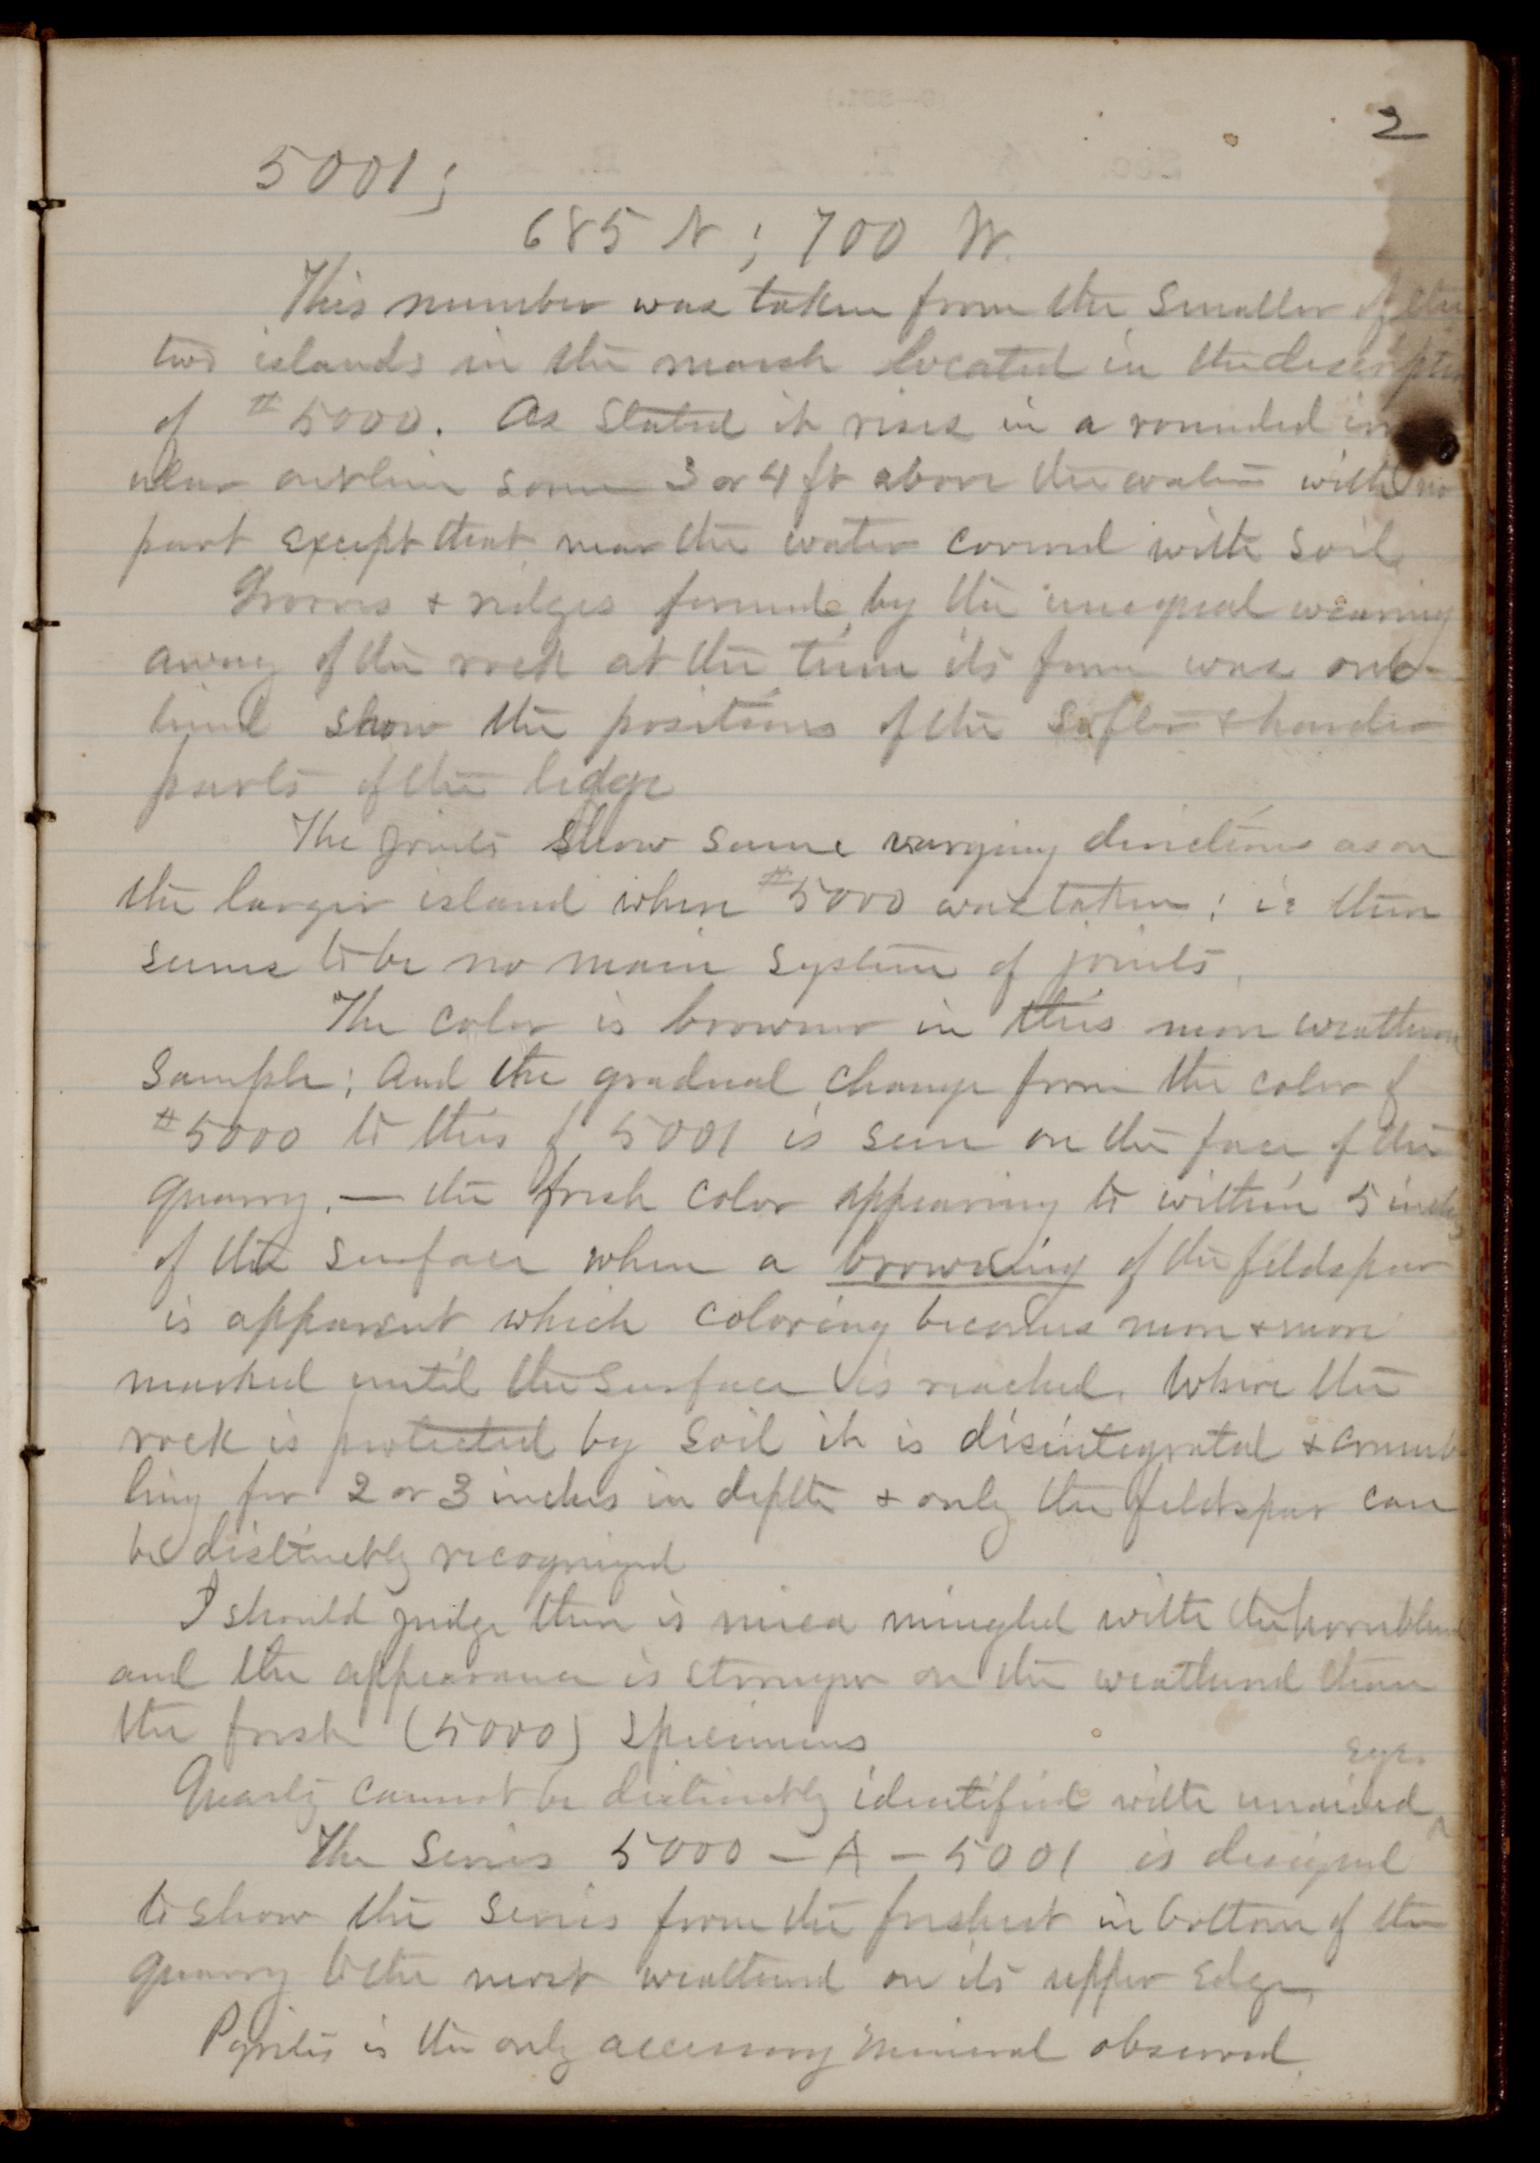 2
5001;
685 N ; 700 W.
This number was taken from the smaller of the
two islands in the marsh located in the descrip
of #5000. As stated it rises in a rounded
outline some 3 or 4 ft above the water with no
part except that near the water covered with soil
Grooves & ridges formed by the unequal wearing
away of the rock at the time its form was out-
lined show the positions of the softer & harder
parts of the ledge
The joints show same varying directions as on
the larger island where #5000 was taken; ie there
seems to be no main system of joints.
The color is browner in this more weathered
sample; And the gradual change from the color of
#5000 to this of 5001 is seen on the face of the
quarry. — the fresh color appearing to within 5 inches
of the surface when a browning of the feldspar
is apparent which coloring becomes more & more
marked until the surface is reached. Where the
rock is protected by soil it is disintegrated & crumb
ling for 2 or 3 inches in depth & only the feldspar can
be distinctly recognized
I should judge there is mica mingled with the hornblend
and the appearance is stronger on the weathered than
the fresh (5000) specimens
eye.
Quartz cannot be distinctly identified with unaided ^
The Series 5000 – A – 5001 is designed
to show the series from the freshest in bottom of the
quarry to the most weathered on its upper edge,
Pyrites is the only accessory mineral observed.